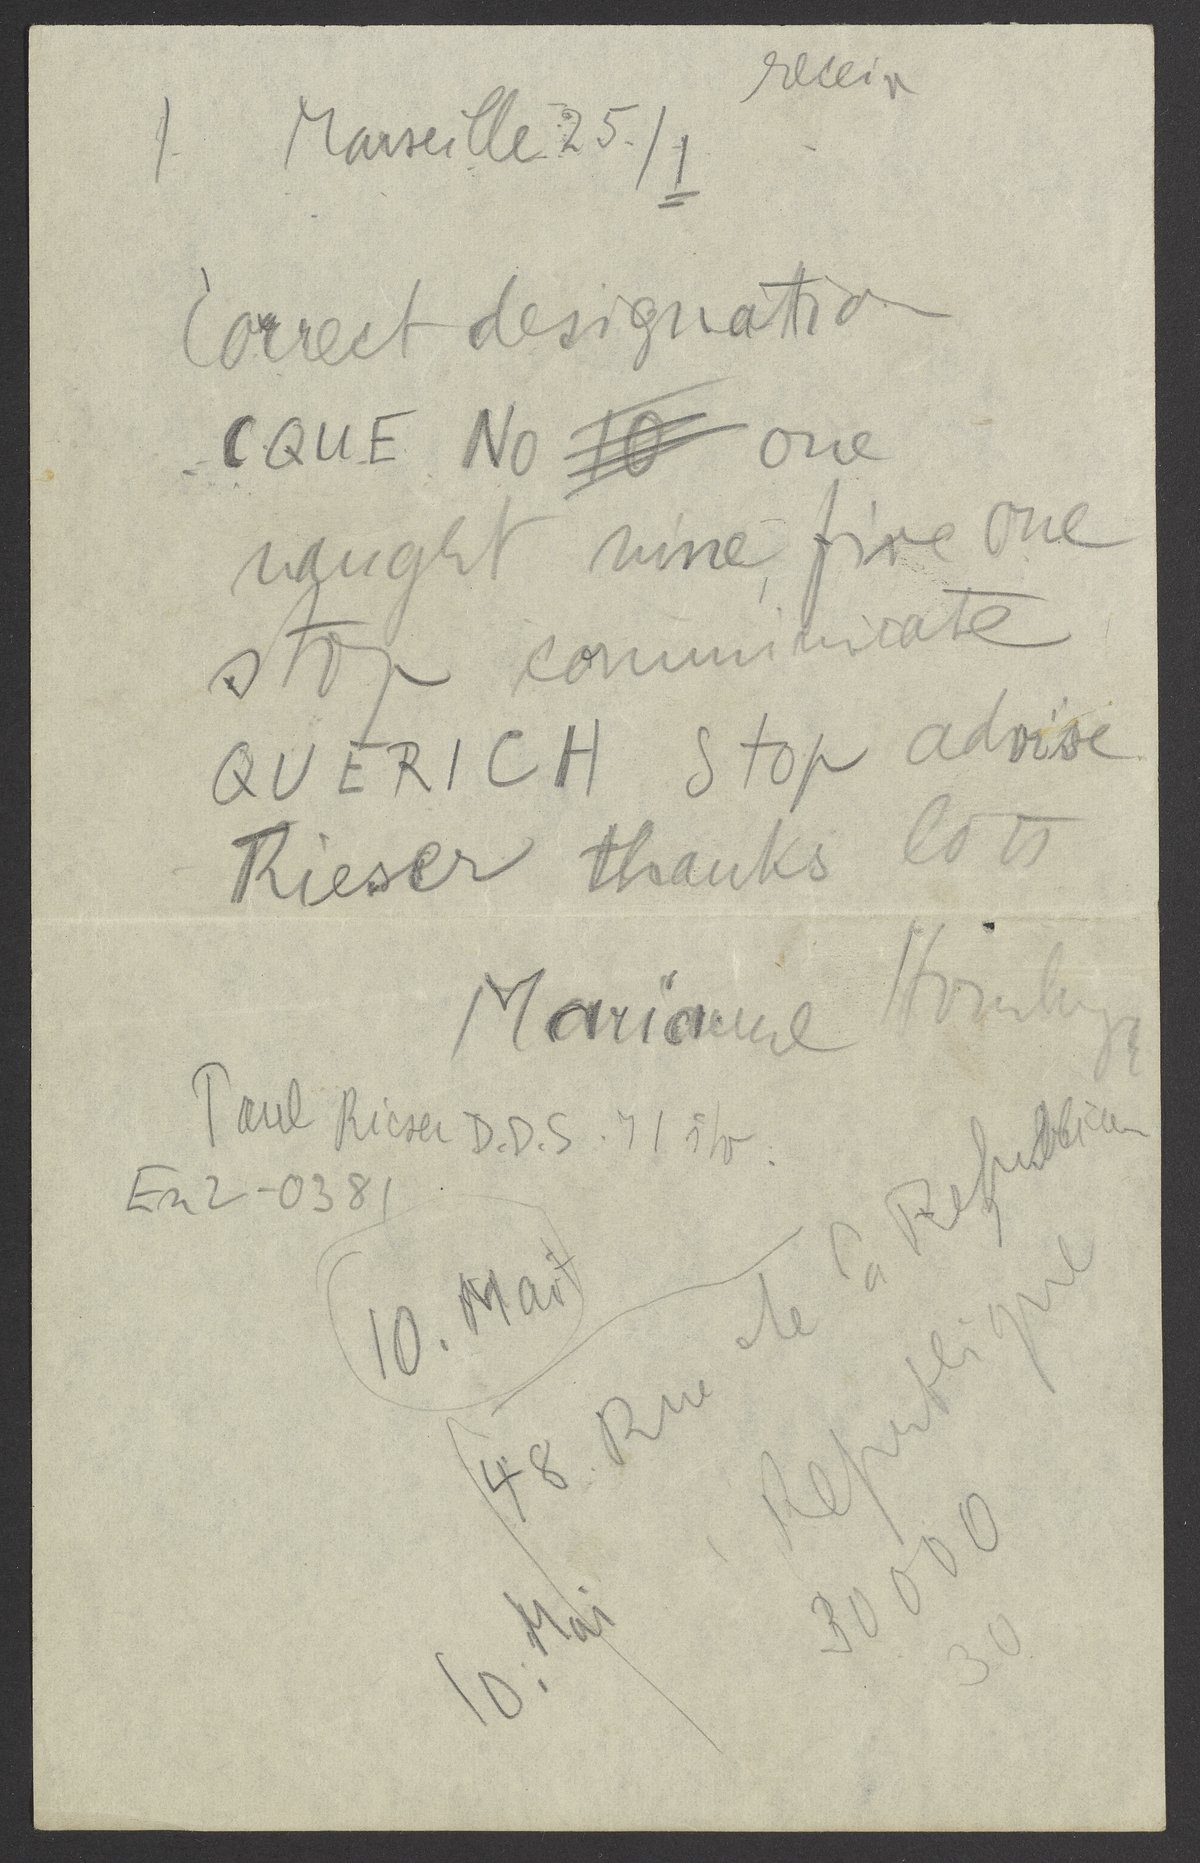 1. Marseille 25./1
Correct designation
CQUE No 10 one
naught nine five one
stop communicate
QUERICH Stop advise
Rieser thanks lots
Marianne
Paul Rieser D.D.S. 71
En2-0381
10. Mai
48 Rue de la Republican
Republique
10. Mai
30000
30